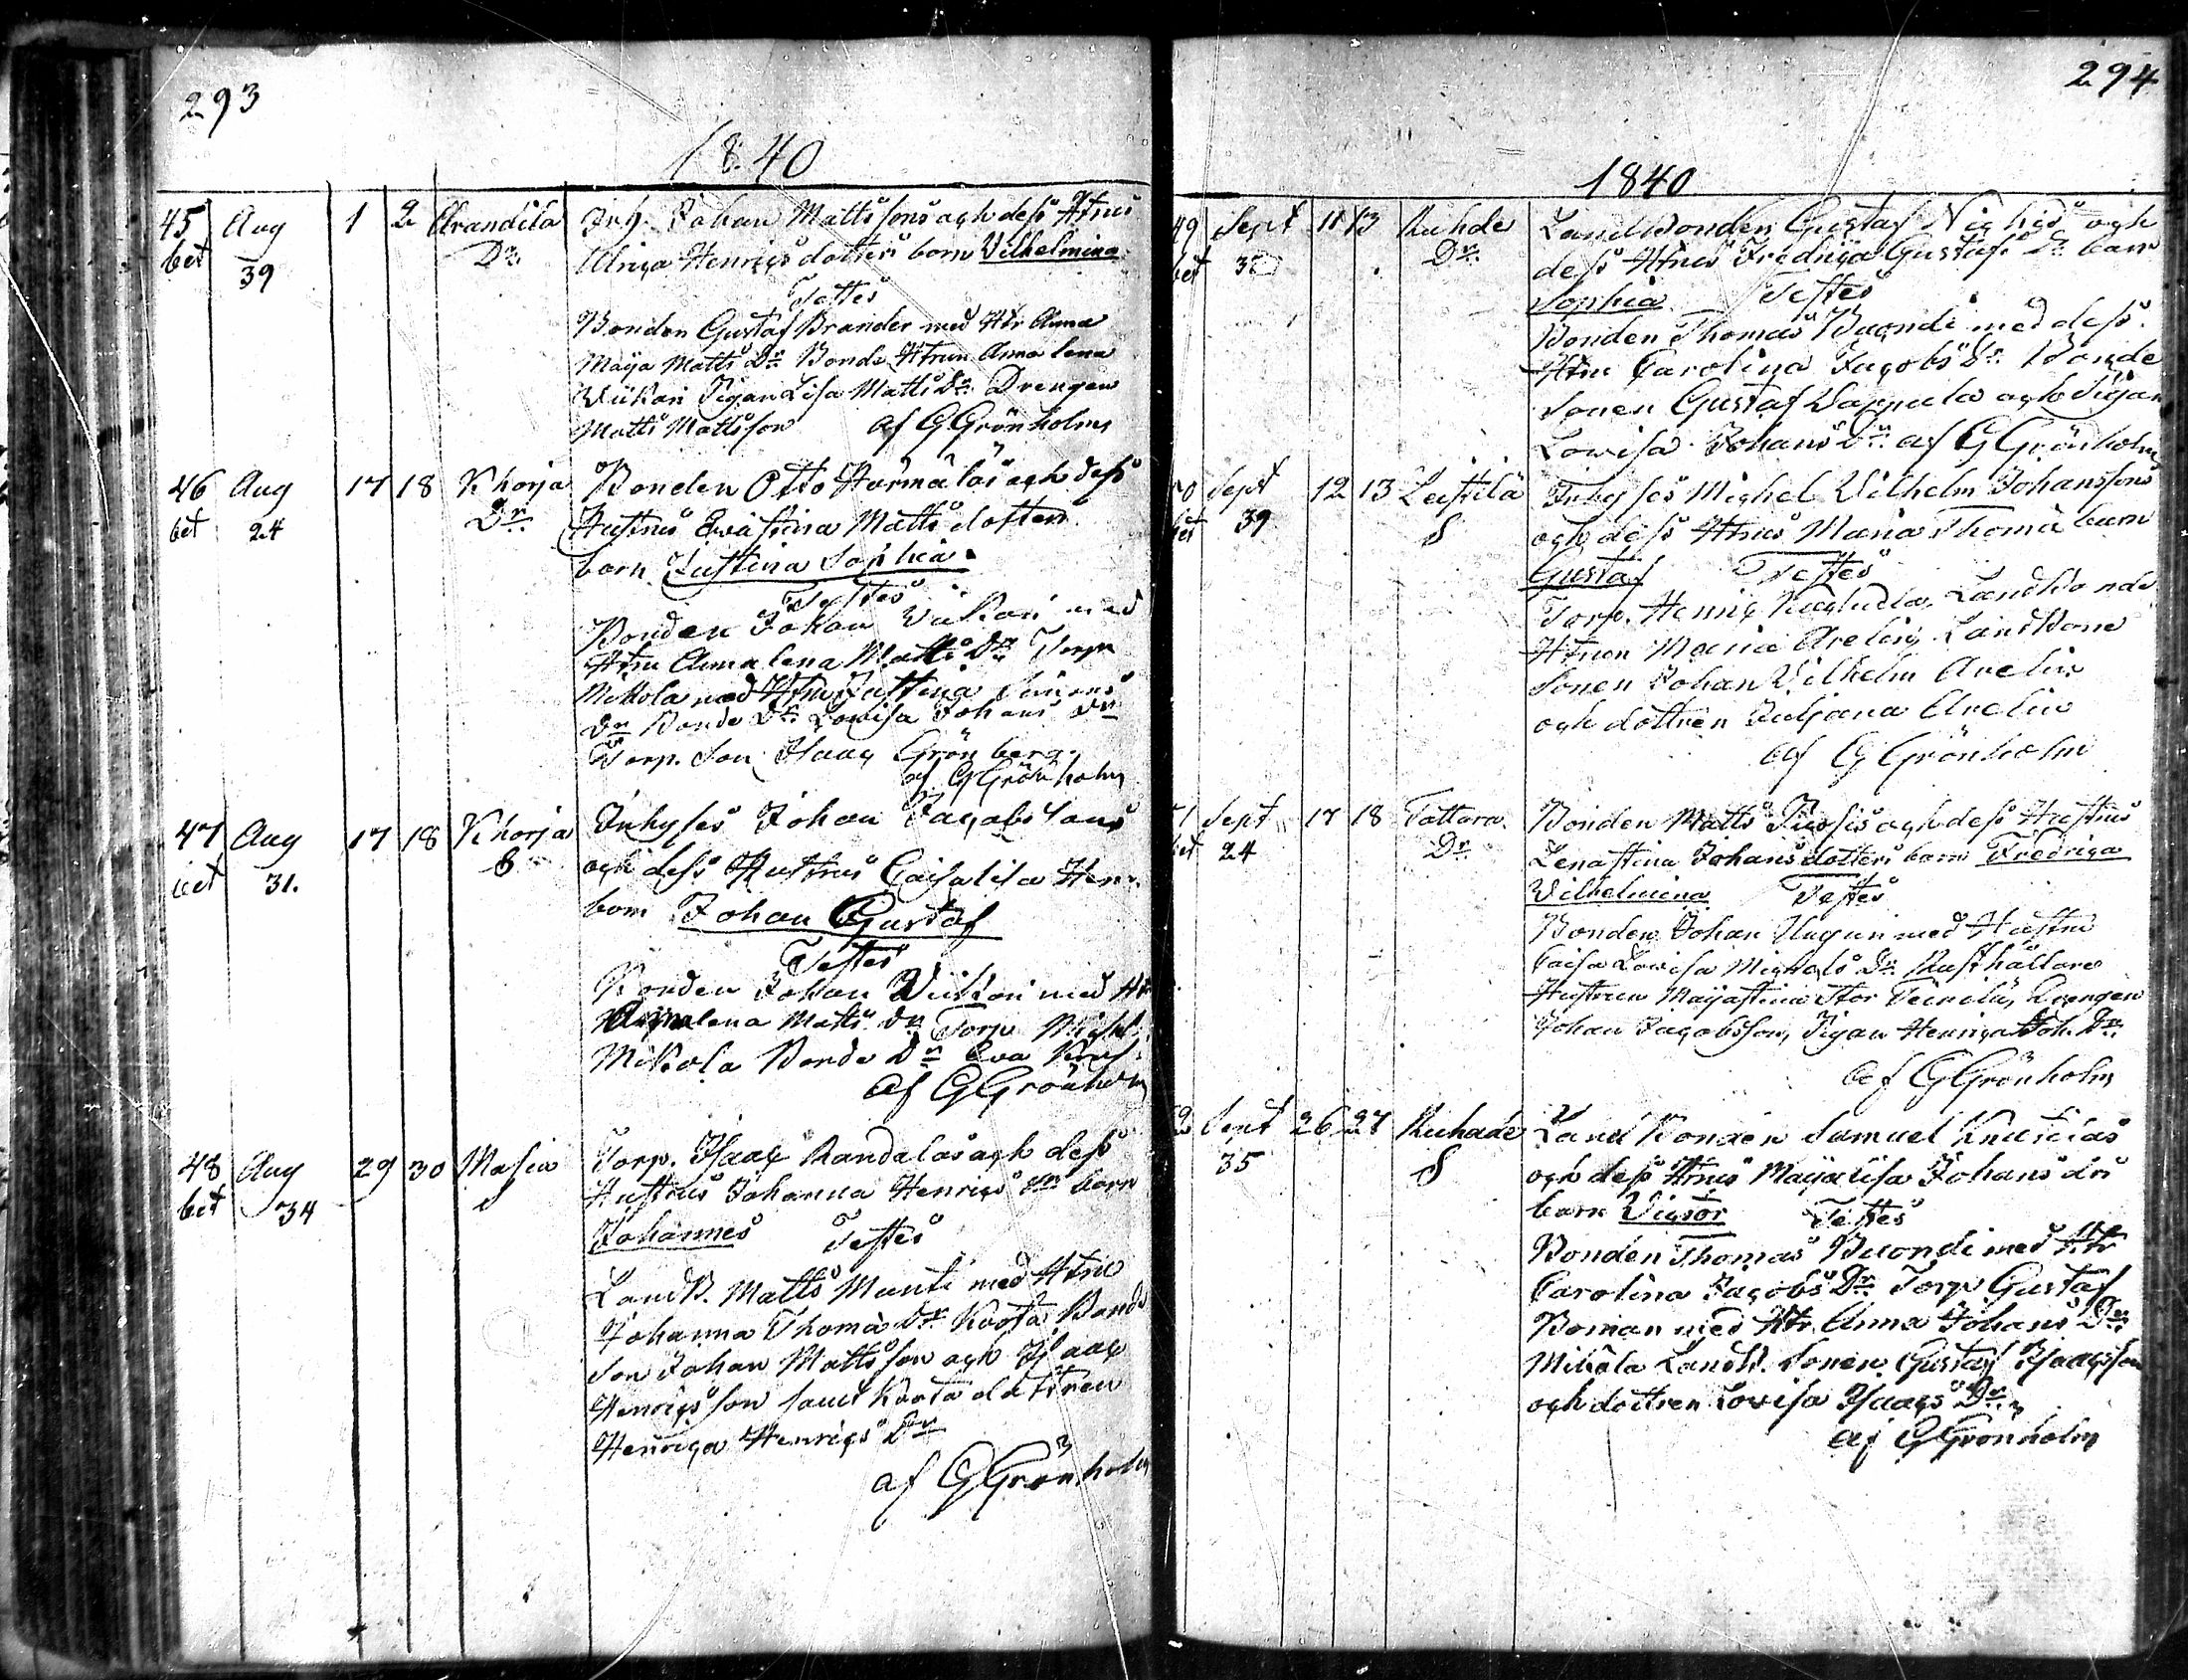 293
1840
45 Aug 1 2 Arandila Inh. Johan Mattssons och dess Htrus
bet 39 Dr. Ulrica Henrics dotters barn Wilhelmina
Testes
Bonden Gustaf Brander med Htr Anna
Maija Matts Dr Bonde Htrun Anna Lena
Wiikari Pigan Lisa Matts Dr Drengen
Matts Mattsson af G Grönholm
46 Aug 17 18 Khorja Bonden Otto Härmäläs och dess
bet 24 Dr. Hustrus Eva Stina Matts dotters
barn Justina Sophia
Testes
Bonden Johan Wiikari med
Htru Anna Lena Matts Dr Torp
Mikola med Htru Justina Simons
Dr Bonde Dr Lovisa Johans Dr
Torp. Son Isaac Grönberg
af G Grönholm
47 Aug 17 18 Khorja Inhyses Johan Jacobssons
bet 31. S och dess Hustrus Caisa Lisa Hen.
barn Johan Gustaf
Testes
Bonden Johan Wiikari med Htr
Annalena Matts Dr Torp Michl.
Mikola Bonde Dr Eva
af G Grönholm
48 Aug 29 30 Masia Torp. Isaac Randalas och dess
bet 34 S Hustrus Johanna Henrics Drs barn
Johannes Testes
LandB. Matts Manti med Htru
Johanna Thoma Dr Korta Bonde
Son Johan Mattsson och Isaac
Henricsson samt Korta dottren
Henrica Henrics Dr
af G Grönholm
294
1840
49 Sept 11 13 Ruhde LandBonden Gustaf Nighis och
bet Dr. dess Htrus Fredrica Gustafs Dr barn
Sophia Testes
Bonden Thomas Buondi med dess
Htru Carolina Jacobs Dr Bonde
Sonen Gustaf Wappula och Pigan
Lovisa Johans Dr af G Grönholm
50 Sept 12 13 Leistilä Inhyses Michel Wilhelm Johanssons
bet 39 S och dess Htrus Maria Thoma barn
Gustaf Testes
Torp. Henric LandBonde
Htrun Maria Arelin LandBonde
Sonen Johan Wilhelm Arelin
och dottren Juljana Arelin
af G Grönholm
51 Sept 17 18 Tattara Bonden Matts och dess Hustrus
bet 24 Dr Lenastina Johans dotters barn Fredrica
Wilhelmina Testes
Bonden Johan Uugun med Hustru
Caisa Lovisa Michels Dr Rusthållare
Hustrun Maijastina Stor Drengen
Johan Jacobsson, Pigan Henrica Joh. Dr.
af G Grönholm
52 Sept 26 27 Ruhade LandBonden Samuel
35 S och dess Htrus Maija Lisa Johans Drs
barn Victor Testes
Bonden Thomas Buondi med Htr
Carolina Jacobs Dr Torp Gustaf
Boman med Htr Anna Johans Dr
Mikola LandB. Sonen Gustaf Isaacsson
och dottren Lovisa Isaacs Dr
af G Grönholm